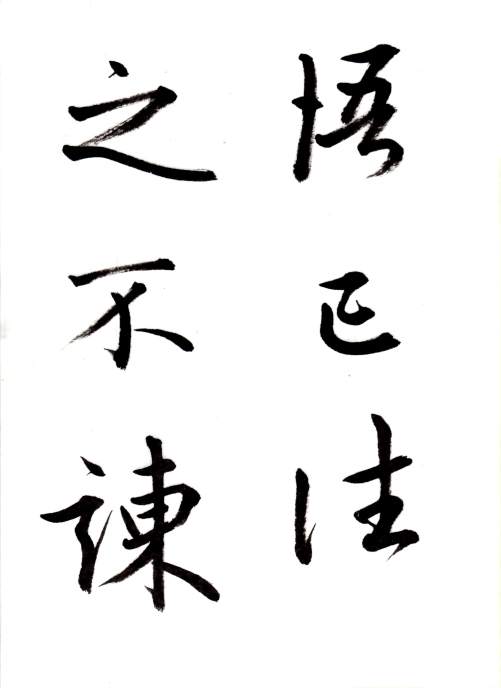 悟已往
之不諫